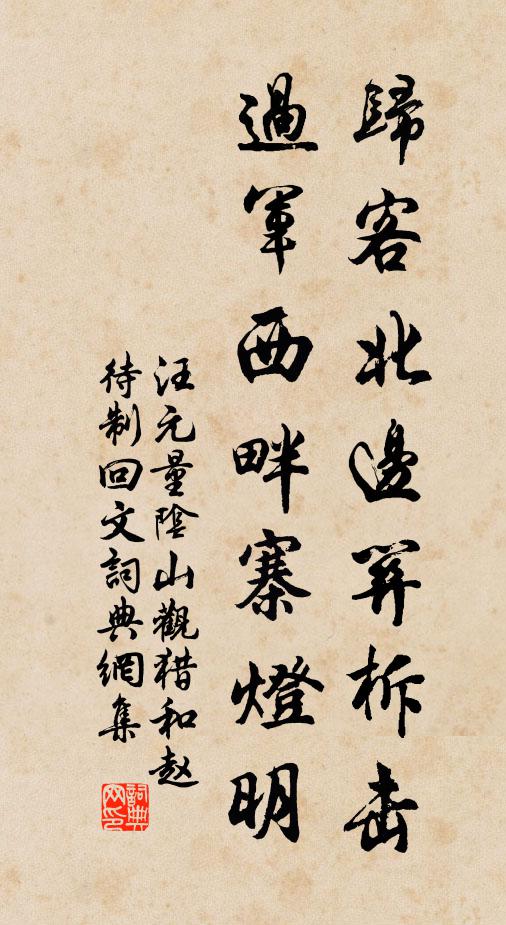 歸客北邊關柝击
過軍西畔寨燈明
汪元量陰山觀猎和赵
待制回文詞典網集
詞典网印